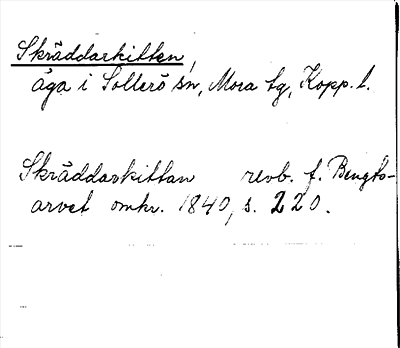 Skräddarkitten,
äga i Sollerö sn, Mora tg, Kopp. l.
Skräddarkittan revb. f. Bengts-
arvet omkr. 1840, s. 220.